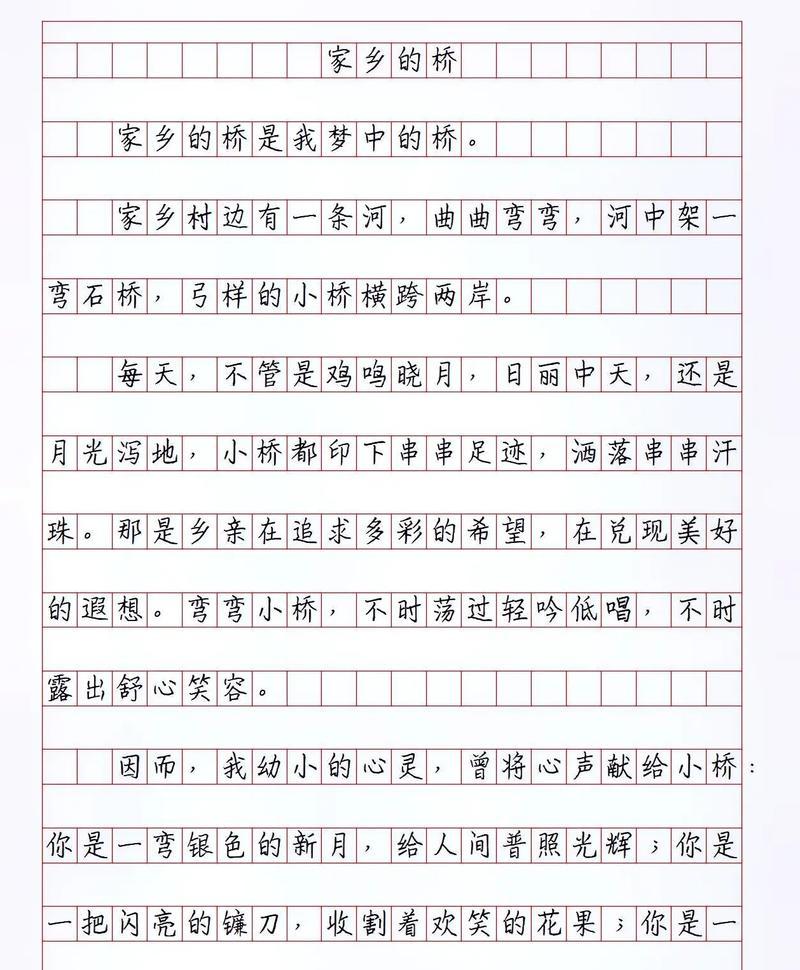 家乡的桥
家乡的桥是我梦中的桥。
家乡村边有一条河，曲曲弯弯，河中架一
弯石桥，弓样的小桥横跨两岸。
每天，不管是鸡鸣晓月，日丽中天，还是
月光泻地，小桥都印下串串足迹，洒落串串汗
珠。那是乡亲在追求多彩的希望，在兑现美好
的遐想。弯弯小桥，不时荡过轻吟低唱，不时
露出舒心笑容。
因而，我幼小的心灵，曾将心声献给小桥：
你是一弯银色的新月，给人间普照光辉；你是
一把闪亮的镰刀，收割着欢笑的花果；你是一